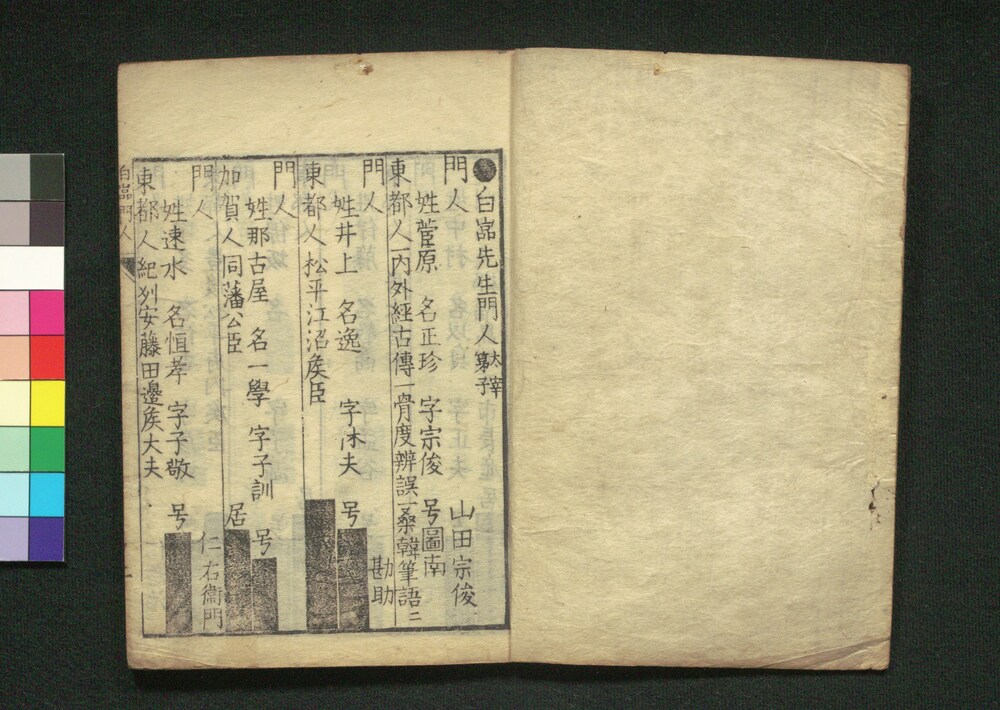 白嵓先生門人 太宰弟子
門人 山田宗俊
姓菅原 名正珍 字宗俊 号圖南
東都人內外經古傳一骨度辨誤一桑韓筆語二
門人 勘助
姓井上 名逸 字沐夫 号
東都人松平江沼矦臣
門人
姓那古屋 名一學 字子訓 号
加賀人同藩公臣 居
門人 仁右衞門
姓速水 名恒孝 字子敬 号
東都人紀列安藤田邉矦大夫
白嵓門人